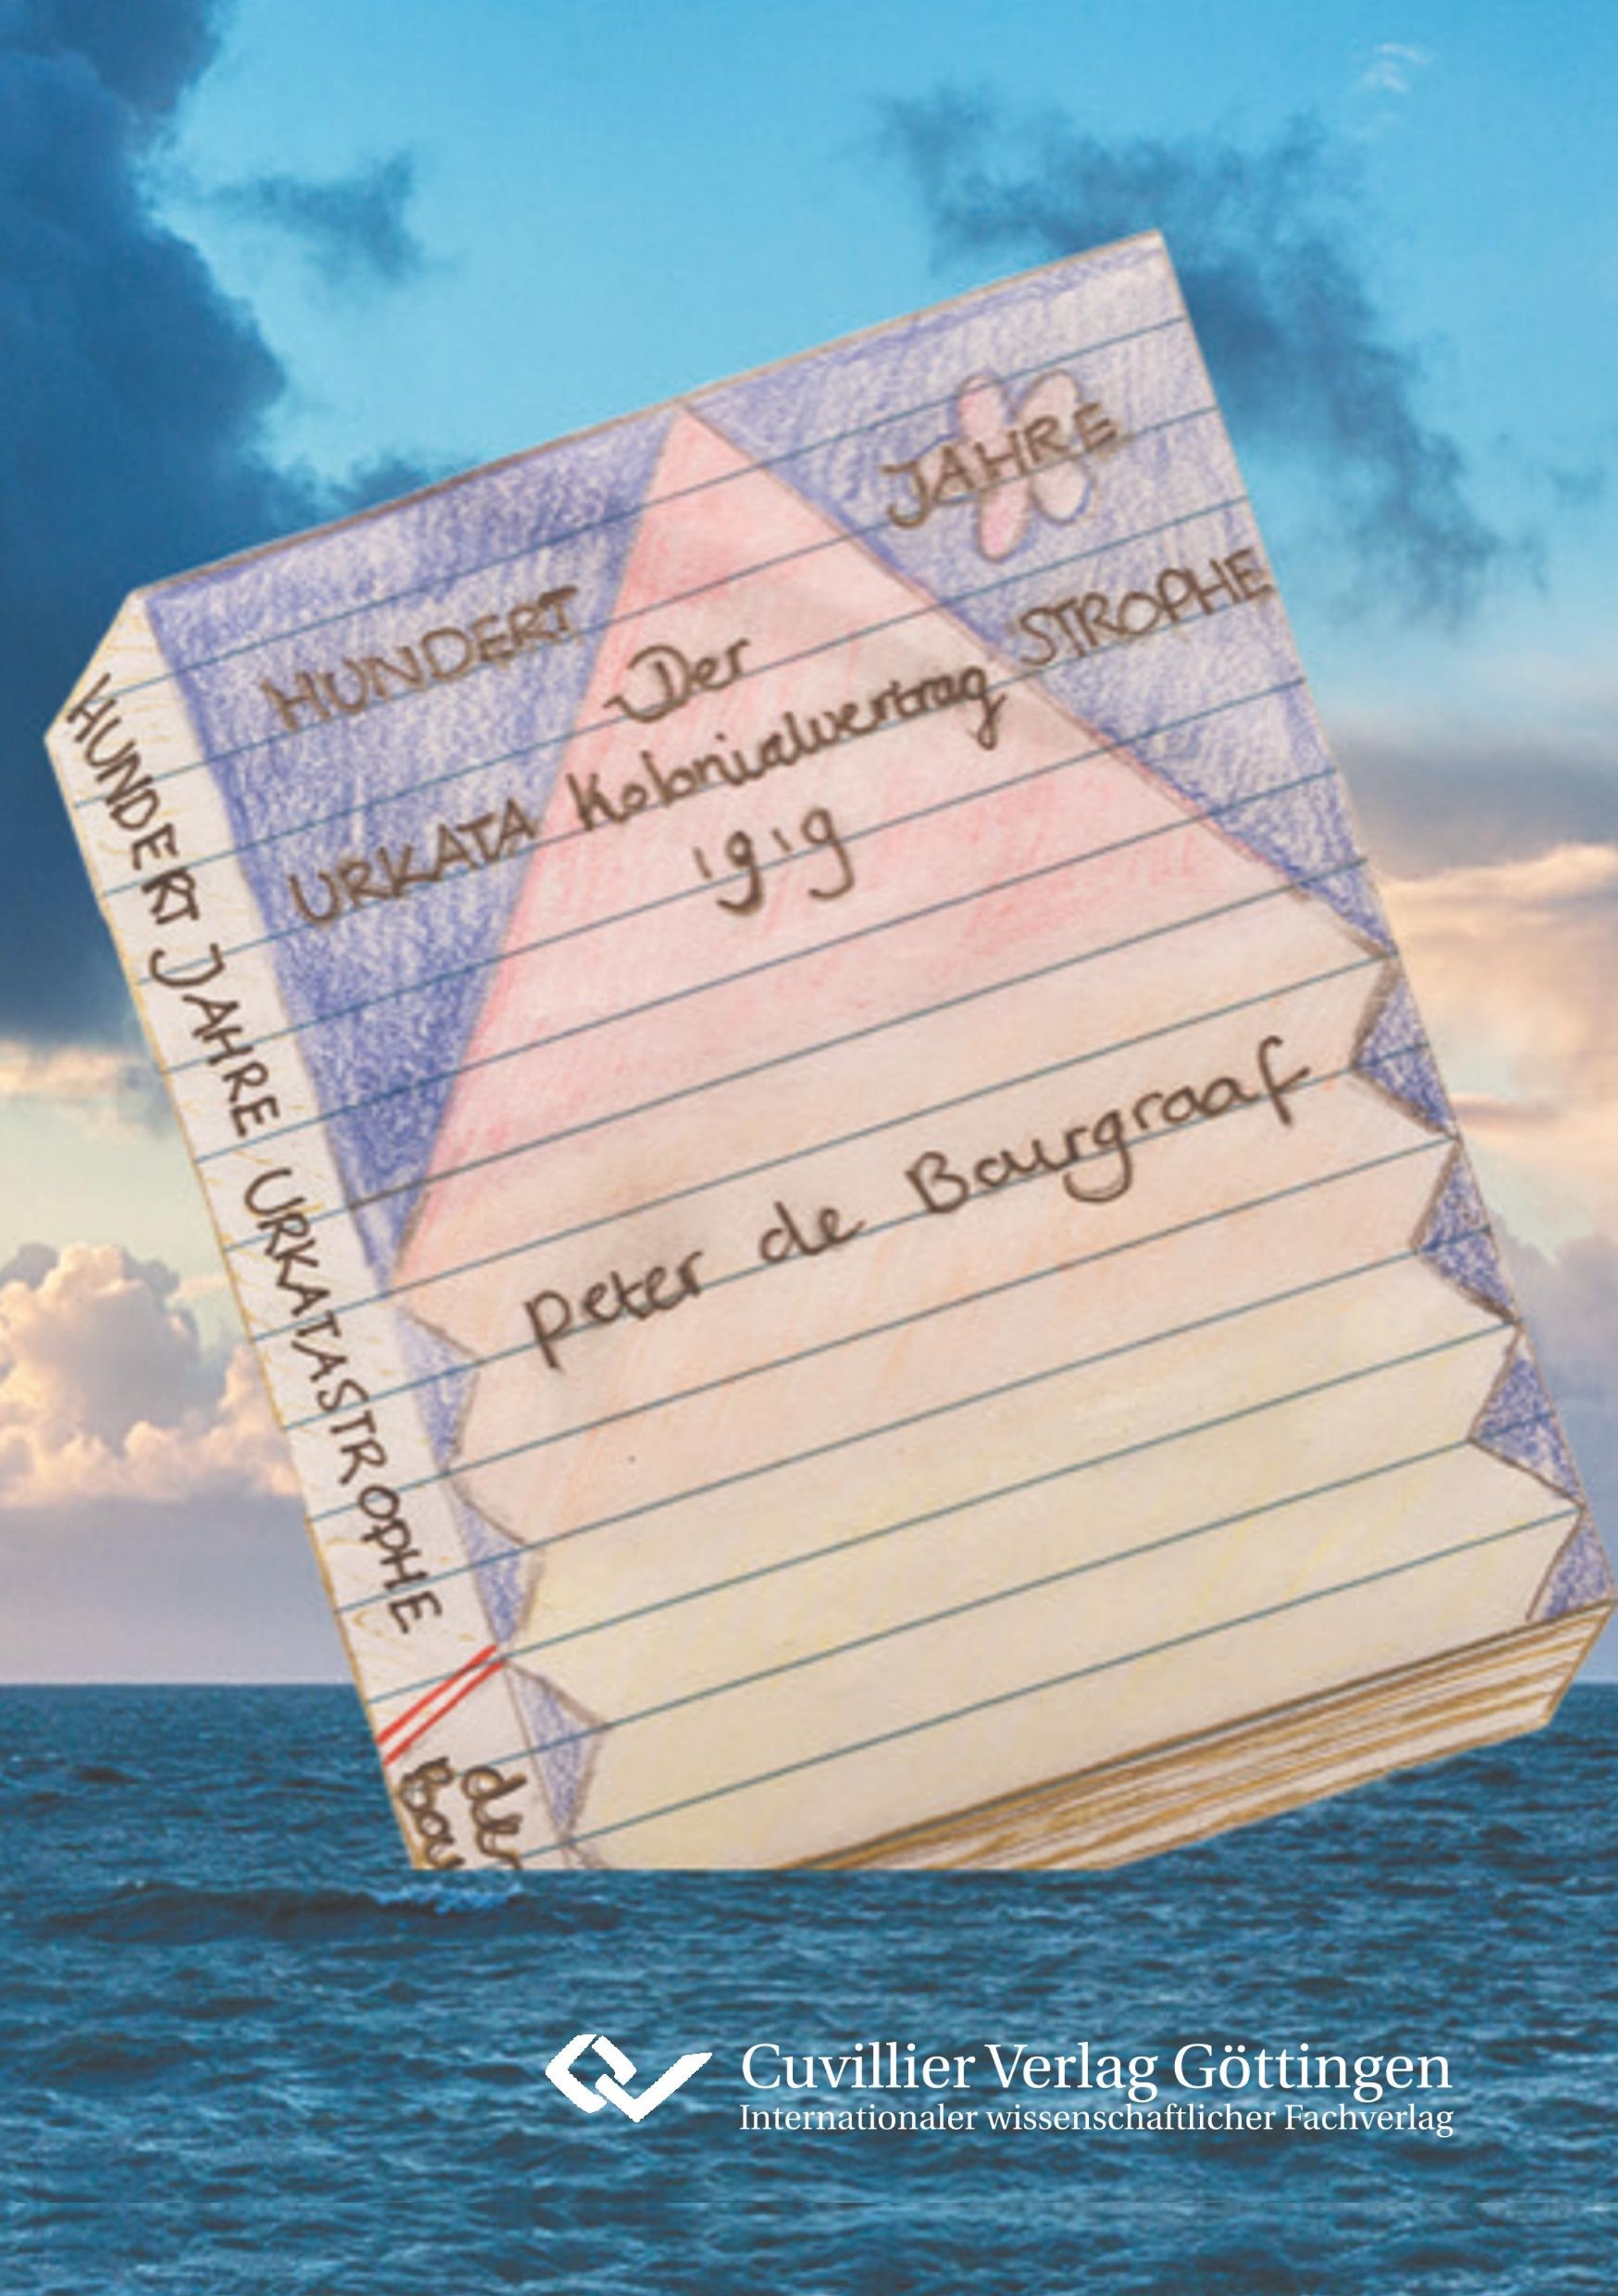 HUNDERT JAHRE
URKATA STROPHE
Der
Kolonialvertrag
1919
peter de Bourgraaf
HUNDERT JAHRE URKATASTROPHE
de
Bou
Cuvillier Verlag Göttingen
Internationaler wissenschaftlicher Fachverlag